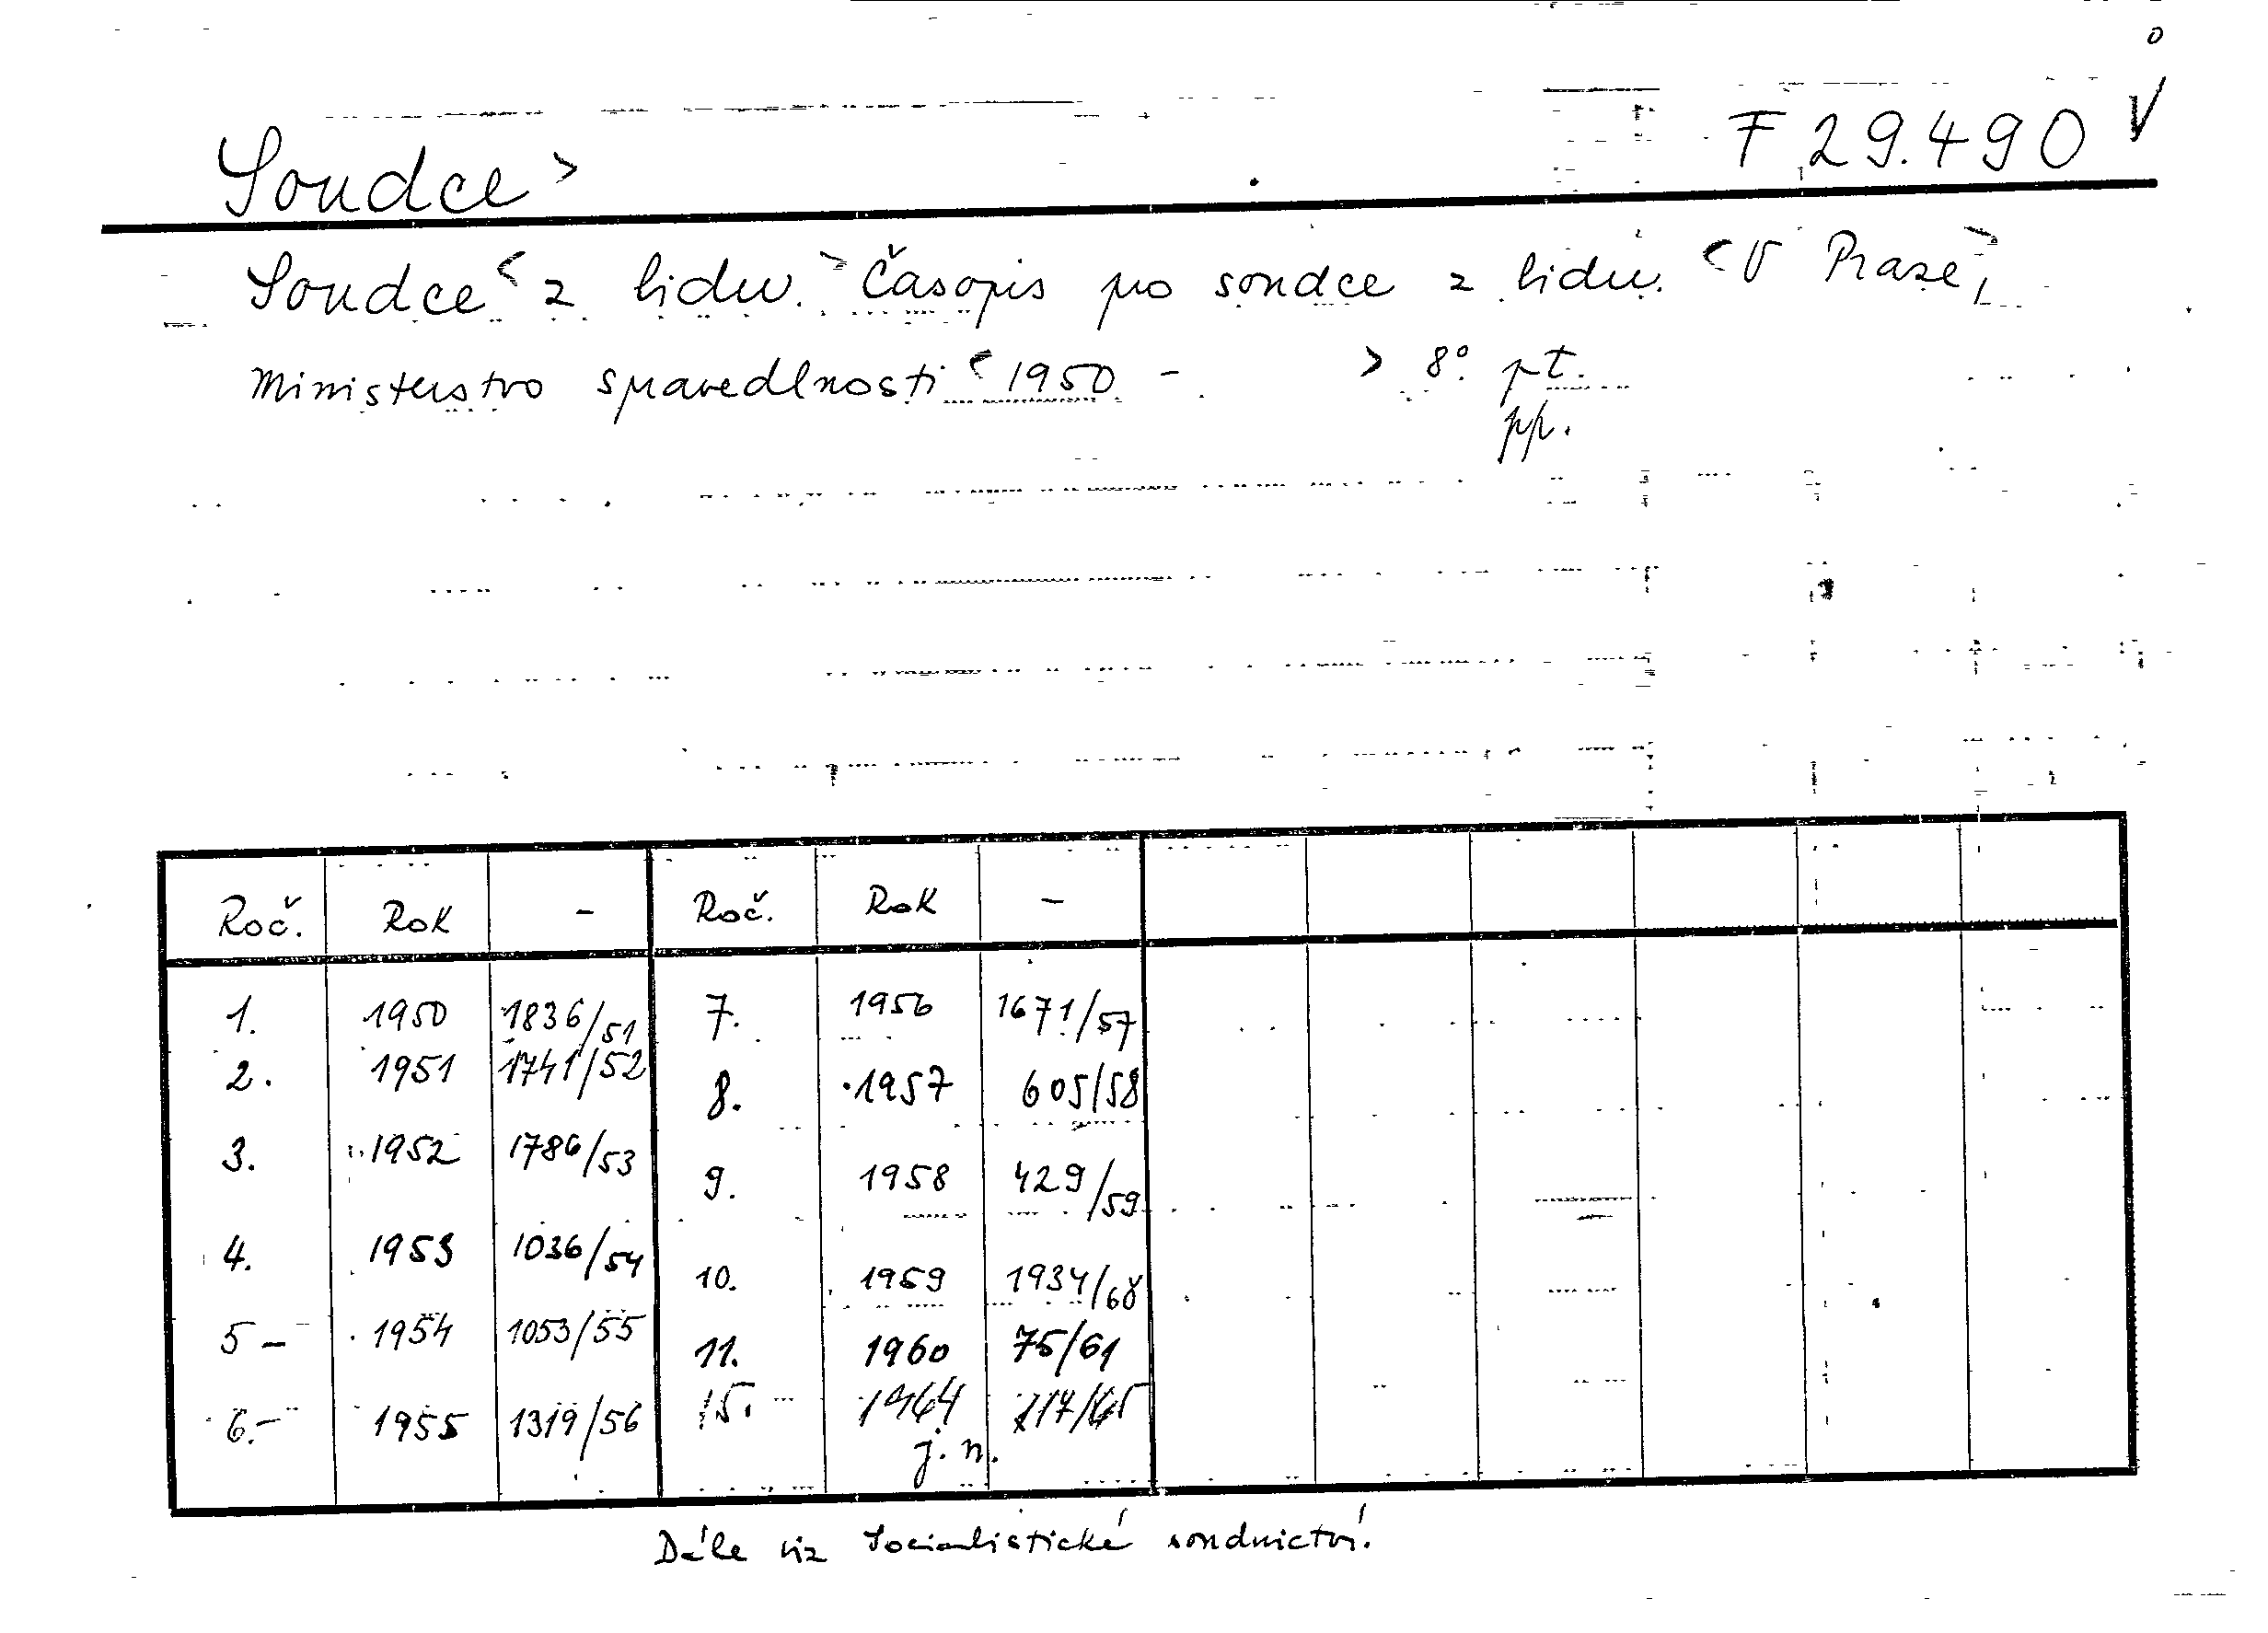 Soudce > F 29.490 V
Soudce < z lidu. > Časopis pro soudce z lidu. < V Praze, >
Ministerstvo spravedlnosti < 1950 - > 8° pt.
pp.
Roč. Rok - Roč. Rok -
1. 1950 1836/51 7. 1956 1671/57
2. 1951 1741/52 8. 1957 605/58
3. 1952 1786/53 9. 1958 429/59
4. 1953 1036/54 10. 1959 1934/60
5 - 1954 1053/55 11. 1960 75/61
6. - 1955 1319/56 15. - 1964 117/65
j. n.
Dále viz Socialistické soudnictví.